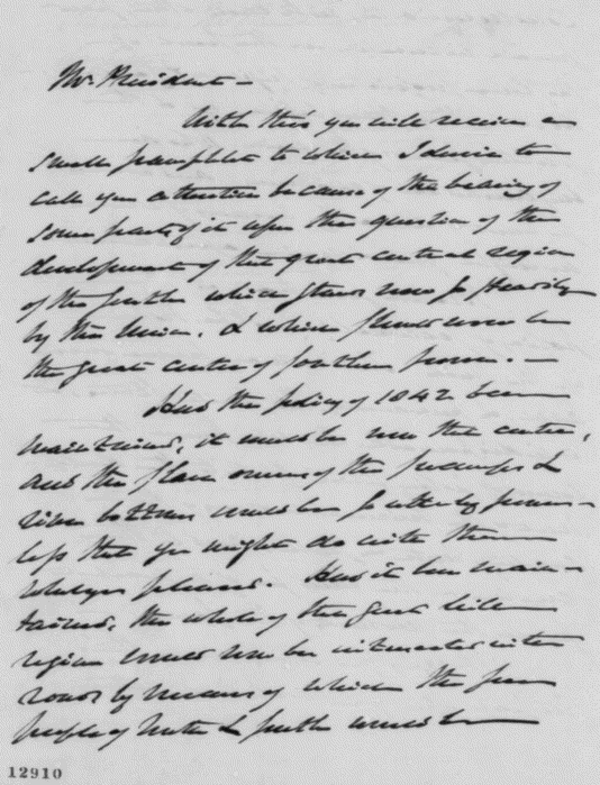 Mr. President —
With this you will receive a
small pamphlet to which I desire to
call your attention because of the bearing of
some parts of it upon the question of the
development of the great central region
of the South which stands now so steadily
by the Union, & which should now be
the great centre of southern power. —
Had the policy of 1842 been
maintained, it would be now the centre,
and the slave owners of the swamps &
river bottoms would be so utterly power-
less that you might do with them
what you pleased. Had it been main-
tained, the whole of the great hill
region would now be intersected with
roads by means of which the free
people of North & South would be
12910